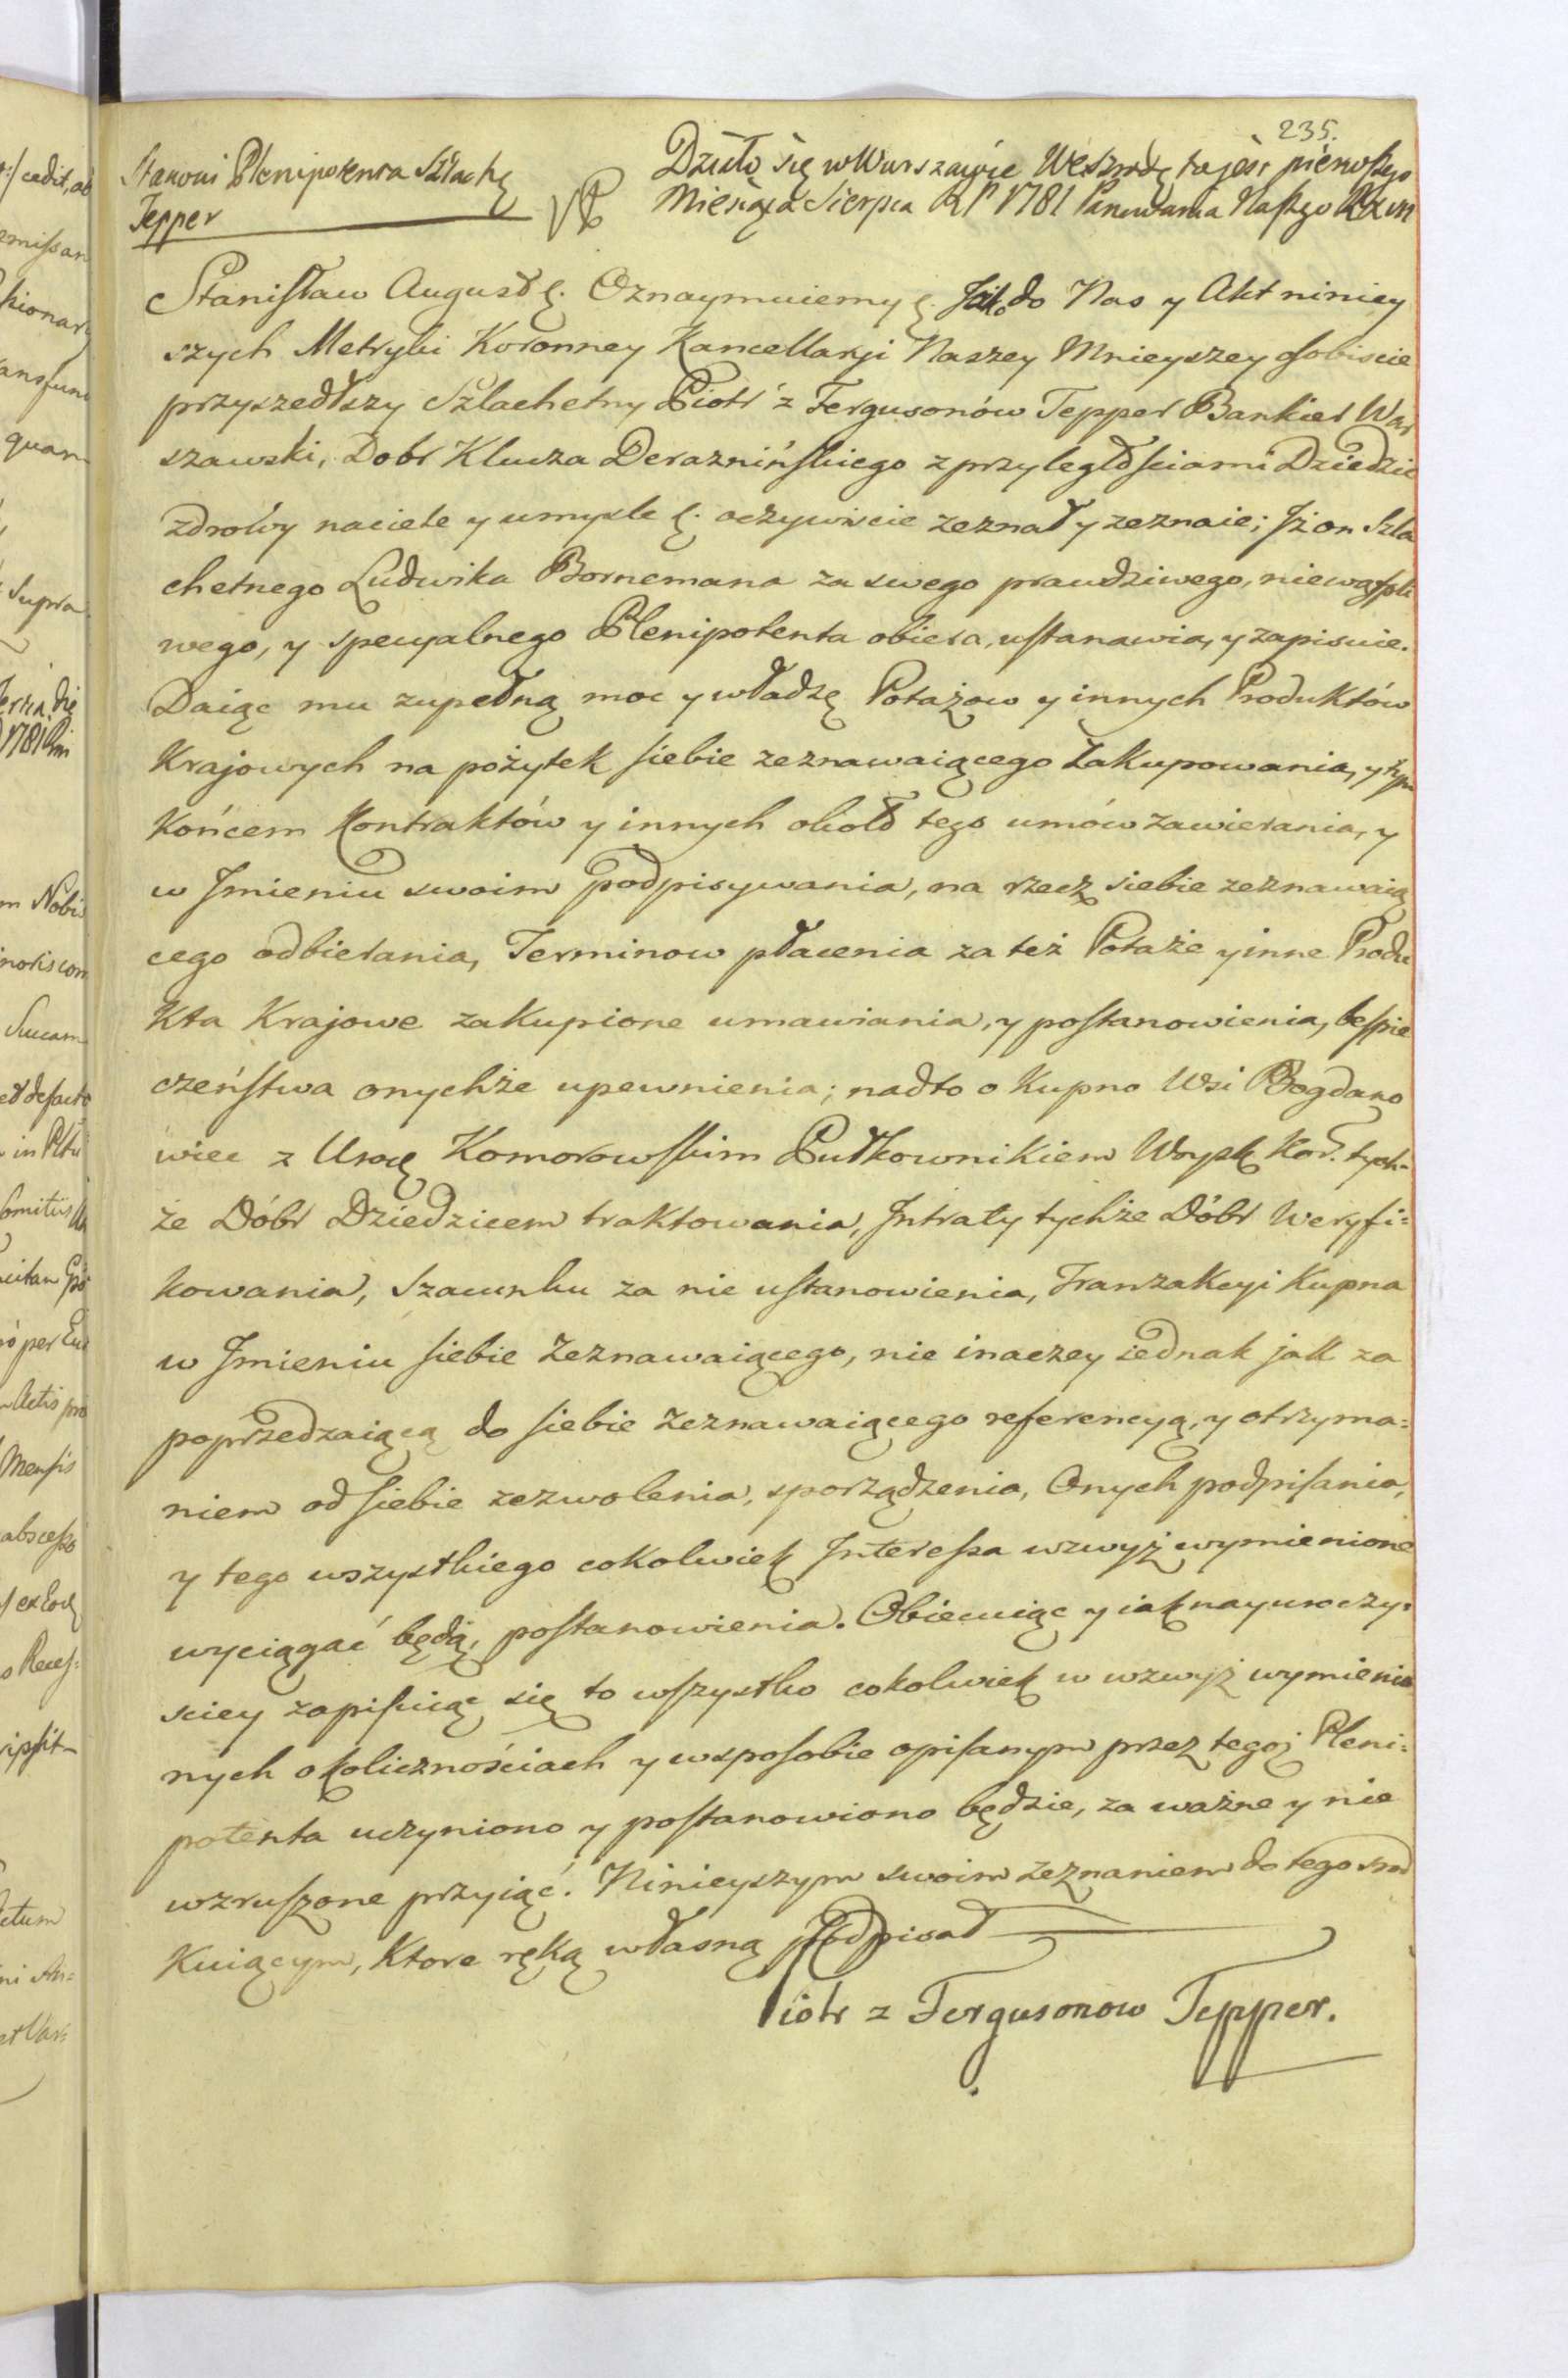 235.
Stanowi Plenipotenta Szlachę
Tepper
Działo się w Warszawie We Szrodę to jest pierwszego
Miesiąca Sierpca R P 1781 Panowania Naszego R XVII
Stanisław August ę. Oznaymuiemy ę. Iż do Nas y Akt niniey
szych Metryki Koronney Kancellaryi Naszey Mnieyszey osobiscie
przyszedłszy Szlachetny Piotr z Fergusonów Tepper Bankier War
szawski, Dobr Klucza Derazninśkiego z przyległościami Dziedzic
zdrowy na ciele y umysle ę. oczywiście zeznał y zeznaie; Iż on Szla
chetnego Ludwika Bornemana za swego prawdziwego, niewątpli
wego, y specyalnego Plenipotenta obiera, ustanawia, y zapisuie.
Daiąc mu zupełną moc y władzę Potażow y innych Produktów
Krajowych na pożytek siebie zeznawaiącego Zakupowania, y tym
końcem Kontraktów y innych około tego umów zawierania, y
w Imieniu swoim podpisywania, na rzecz siebie zeznawaią
cego odbierania, Terminow płacenia za też Potaże y inne Produ
kta Krajowe zakupione umawiania, y postanowienia, bespie
czeństwa onychże upewnienia; nadto o Kupno Wsi Bogdano
wiec z Urodz Komorowskim Pułkownikiem Woysk Kor. tych-
że Dóbr Dziedzicem traktowania, Intraty tychże Dóbr Weryfi=
kowania, Szacunku za nie ustanowienia, Tranzakcyi Kupna
w Imieniu siebie Zeznawaiącego, nie inaczey iednak jak za
poprzedzaiącą do siebie Zeznawaiącego referencyą, y otrzyma=
niem od siebie zezwolenia, sporządzenia, Onych podpisania,
y tego wszystkiego cokolwiek Interessa wzwyż wymienione
wyciągać będą, postanowienia. Obiecuiąc y iak nayuroczy=
sciey zapisuiąc się to wszystko cokolwiek w wzwyż wymienio
nych okolicznościach y w sposobie opisanym przez tegoż Pleni=
potenta uczyniono y postanowiono będzie, za ważne y nie
wzruszone przyiąć. Ninieyszym swoim Zeznaniem do tego srod
Kuiącym, Ktore ręką własną podpisał
Piotr z Fergusonow Tepper.